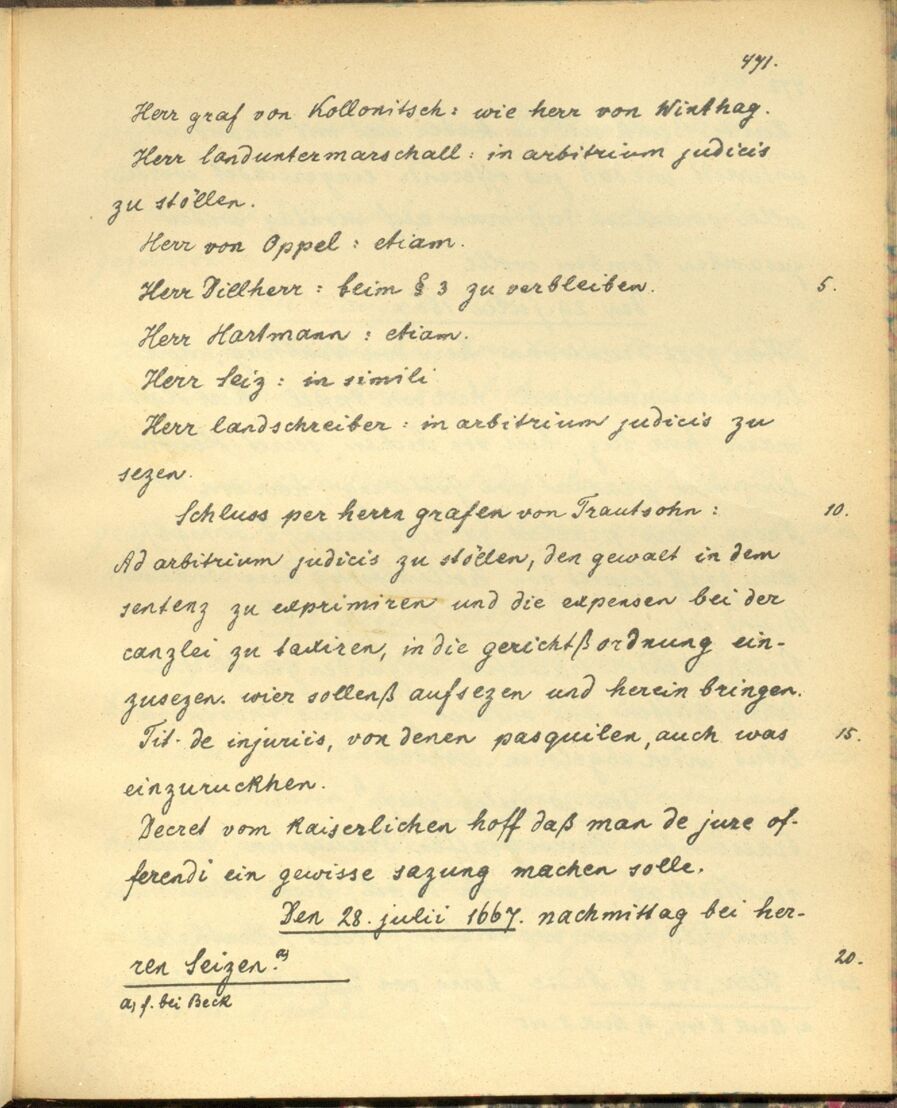 471.
Herr graf von Kollonitsch: wie herr von Winthag.
Herr landuntermarschall: in arbitrium judicis
zu stöllen.
Herr von Oppel: etiam.
Herr Dillherr: beim § 3 zu verbleiben. 5.
Herr Hartmann: etiam.
Herr Seiz: in simili
Herr landschreiber: in arbitrium judicis zu
sezen.
Schluss per herrn grafen von Trautsohn: 10.
Ad arbitrium judicis zu stöllen, den gewalt in dem
sentenz zu exprimiren und die expensen bei der
canzlei zu taxiren, in die gerichtßordnung ein-
zusezen. wier sollenß aufsezen und herein bringen.
Tit. de injuriis, von denen pasquilen, auch was 15.
einzuruckhen.
Decret vom Kaiserlichen hoff daß man de jure of-
ferendi ein gewisse sazung machen solle.
Den 28. julii 1667. nachmittag bei her-
ren Seizen. a) 20.
a) f. bei Beck